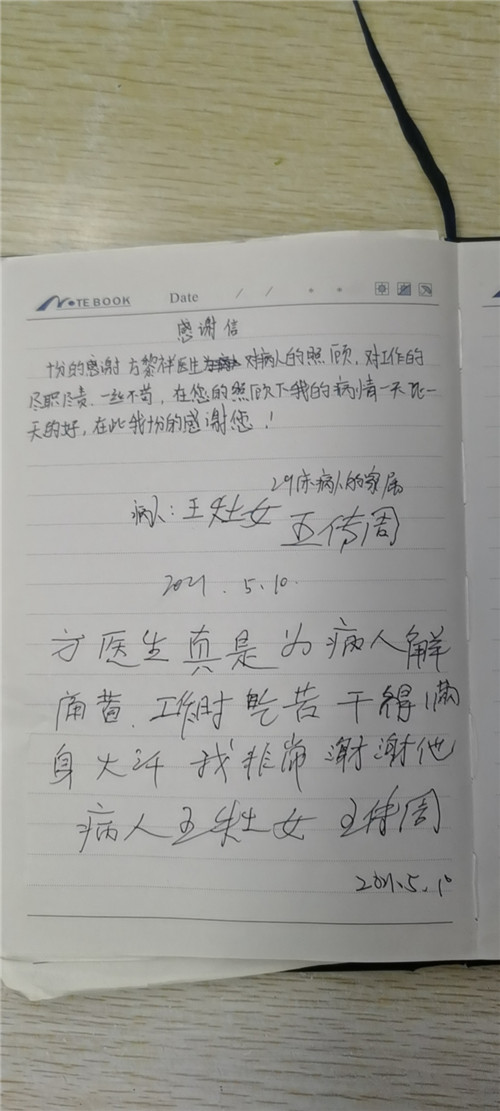 NOTEBOOK Date / /
感谢信
十份的感谢方黎祥医生对病人的照顾，对工作的
尽职尽责，一丝不苟，在您的照顾下我的病情一天比一
天的好，在此我十份的感谢您！
29床病人的家属
病人：王灶女 王传周
2021.5.10.
方医生真是为病人解
痛苦，工作时吃苦干得满
身大汗我非常谢谢他
病人王灶女 王传周
2021.5.10